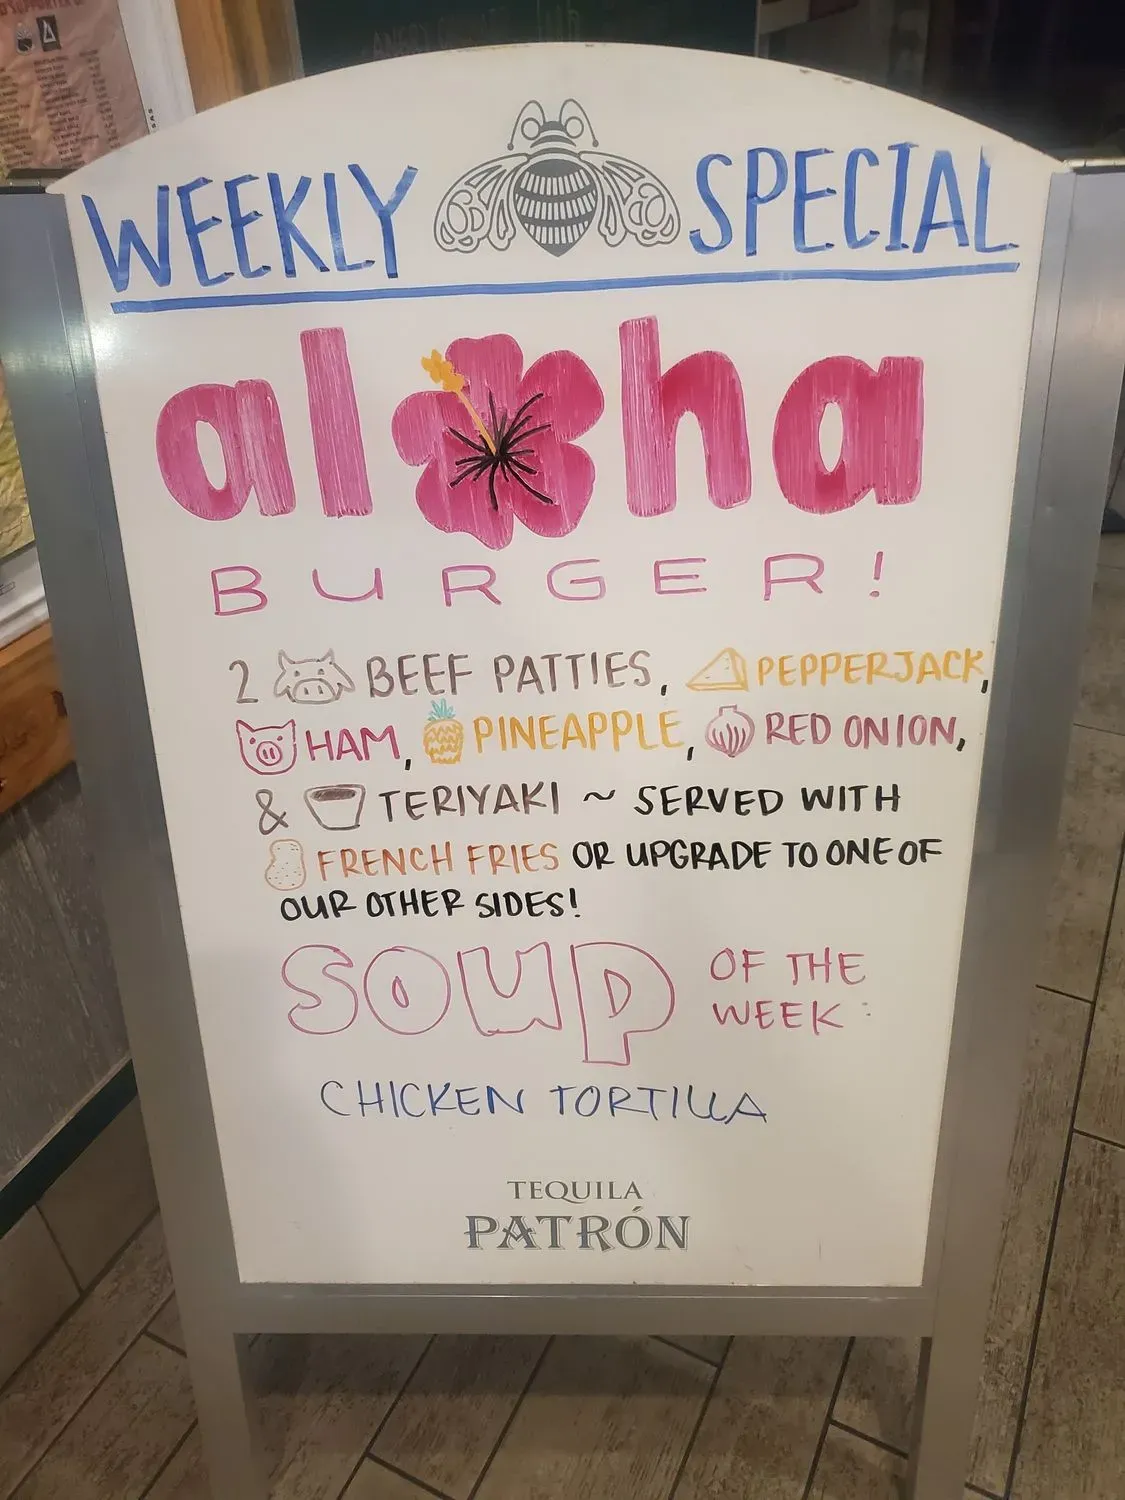 WEEKLY SPECIAL
aloha
BURGER!
2 BEEF PATTIES, PEPPERJACK,
HAM, PINEAPPLE, RED ONION,
& TERIYAKI ~ SERVED WITH
FRENCH FRIES OR UPGRADE TO ONE OF
OUR OTHER SIDES!
SOUP OF THE
WEEK:
CHICKEN TORTILLA
TEQUILA
PATRÓN